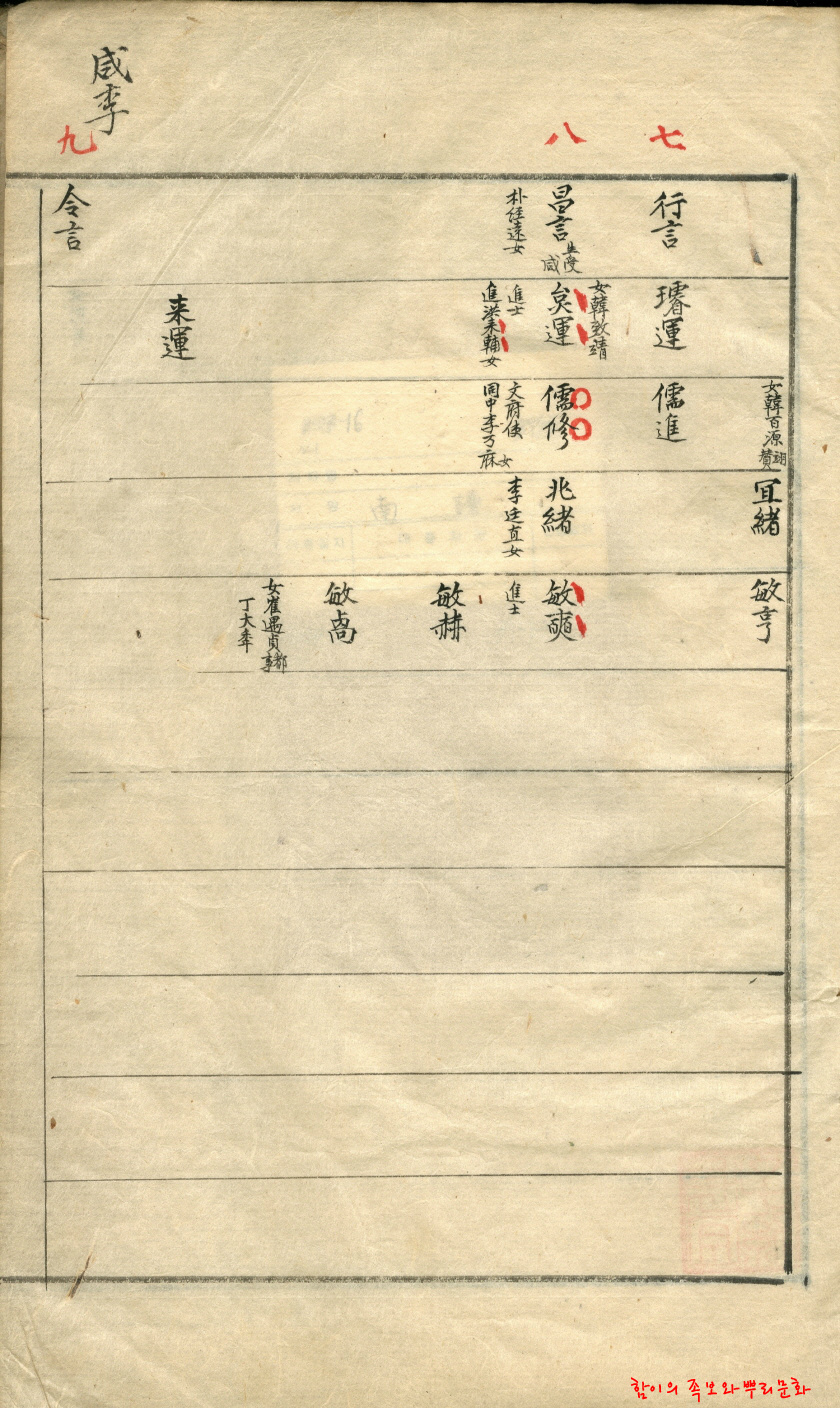 咸李
七
八
九
行言
昌言
朴經遠女
令言
璿運
女韓致靖
運
進士
進洪
輔女
来運
女韓百源
儒進
儒修
文府使
同中李万麻女
宜緒
兆緒
李廷直女
敏亨
敏奭
進士
敏赫
敏卨
女崔遇貞都事
丁大
함이의 족보와뿌리문화